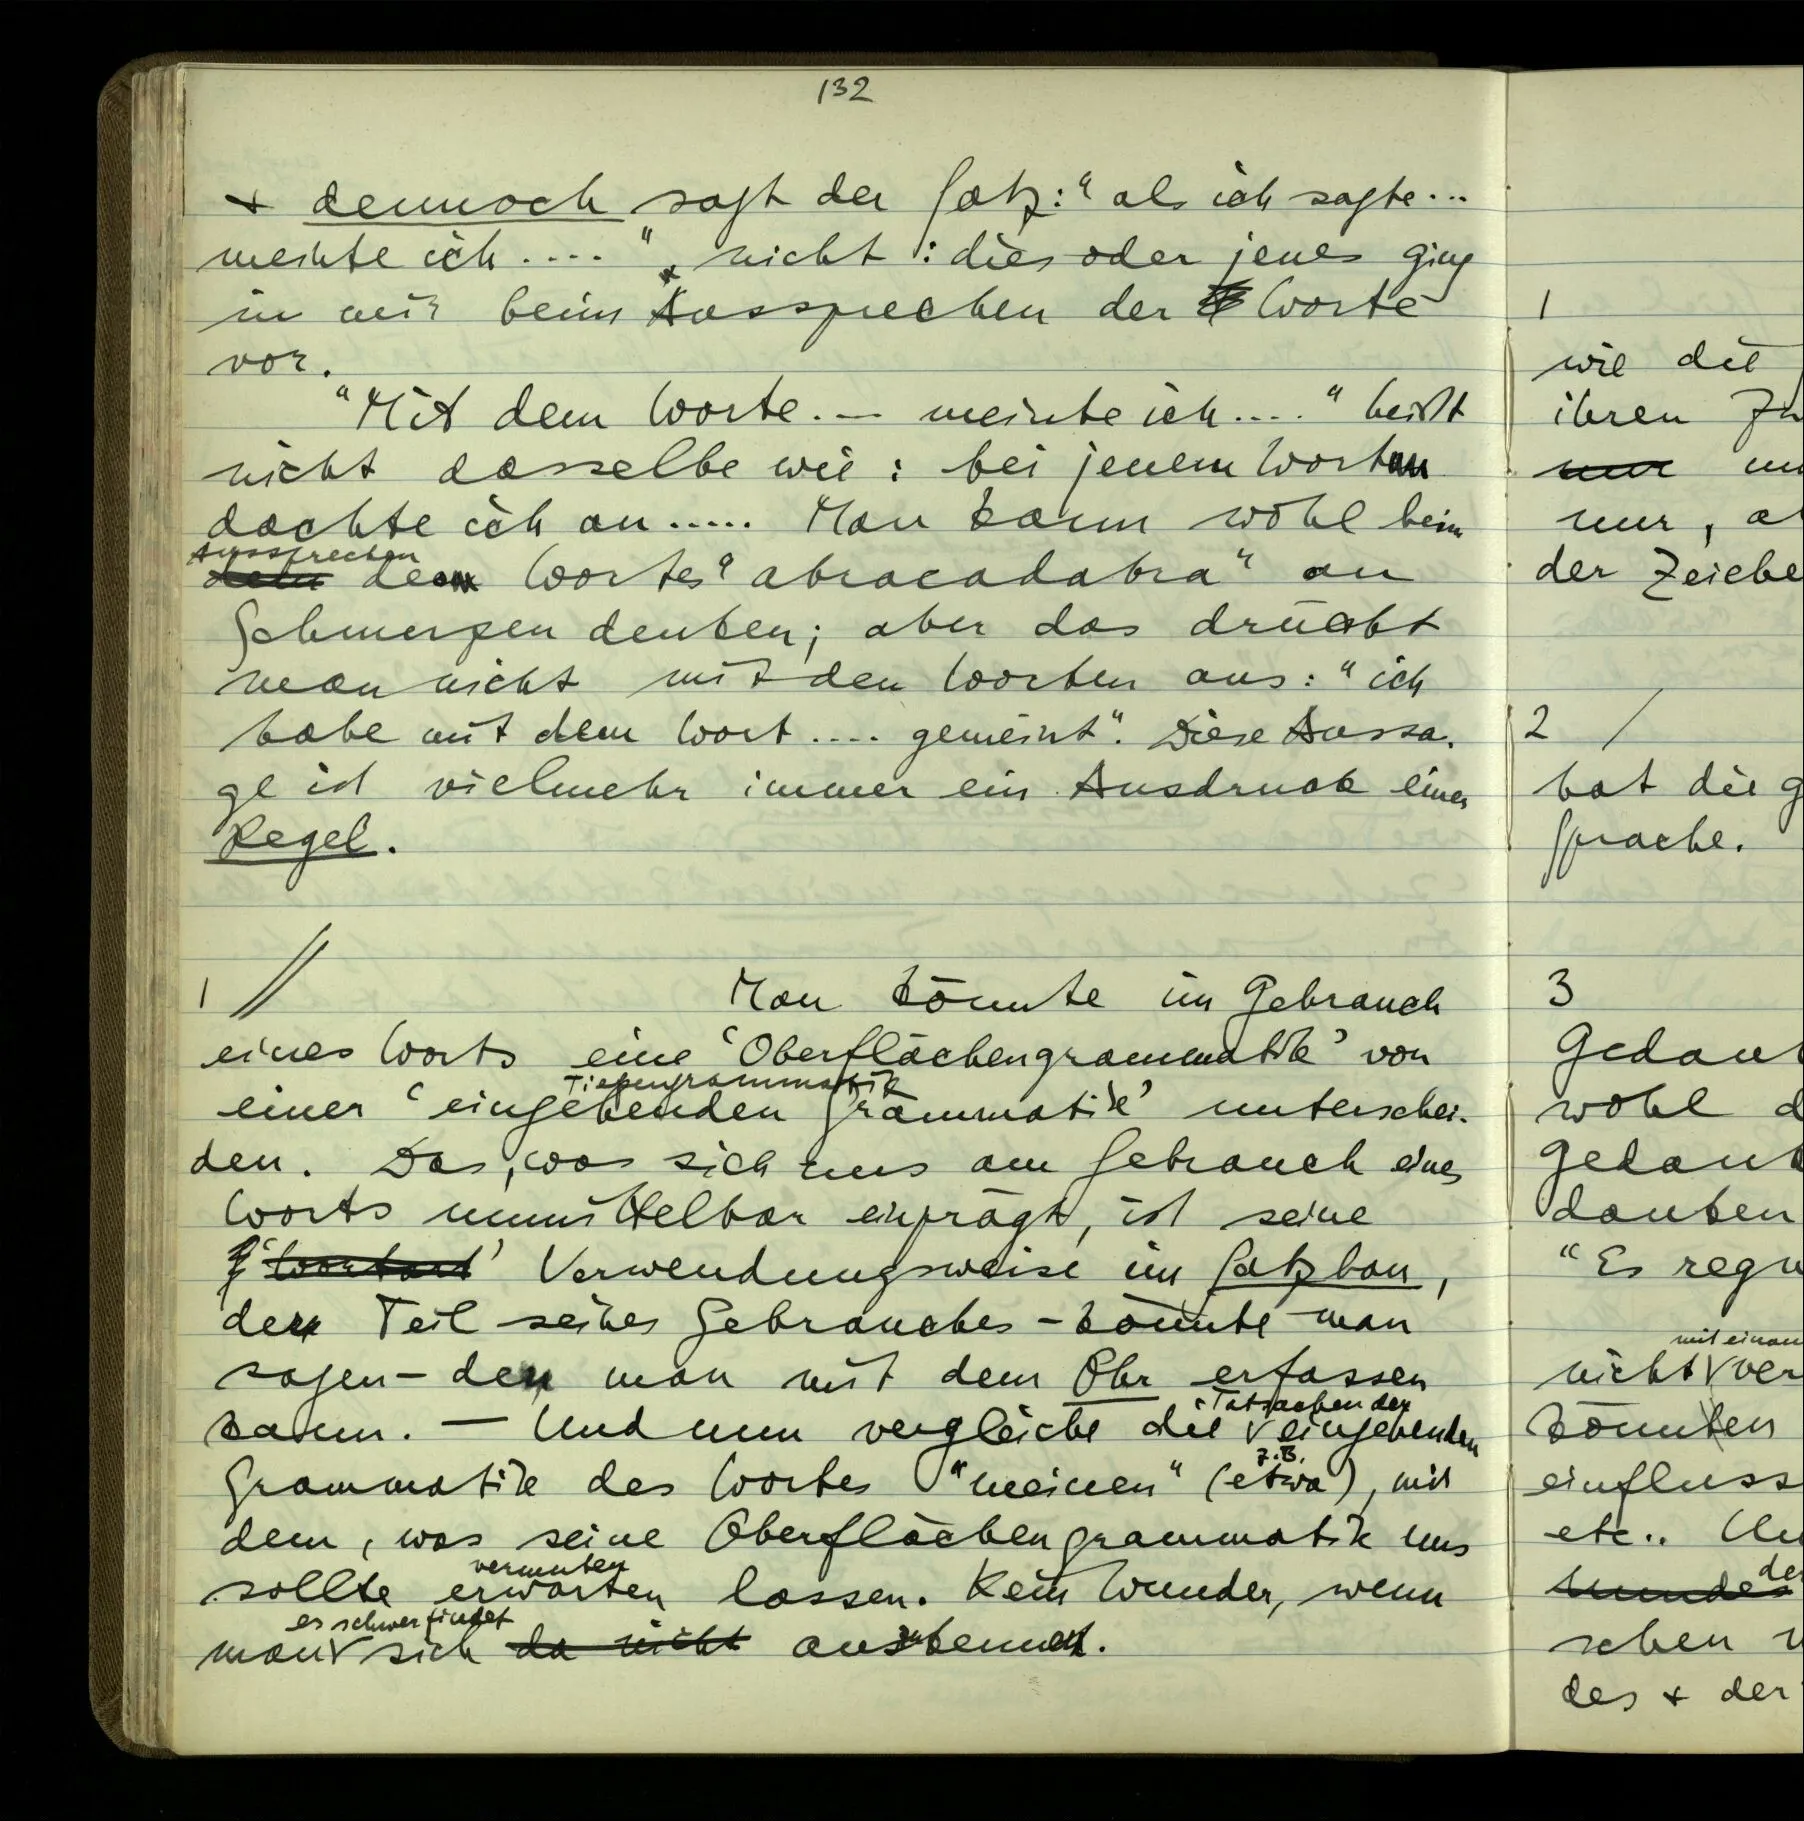 132
& dennoch sagt der Satz: "als ich sagte...
meinte ich ...." nicht: dies oder jenes ging
in mir beim Aussprechen der Worte
vor.
"Mit dem Worte ... meinte ich ...." heißt
nicht dasselbe wie: bei jenem Wort
dachte ich an ..... Man kann wohl beim
Aussprechen
dem des Wortes "abracadabra" an
Schmerzen denken; aber das drückt
man nicht mit den Worten aus: "ich
habe mit dem Wort .... gemeint". Diese Aussa-
ge ist vielmehr immer ein Ausdruck einer
Regel.
1 // Man könnte im Gebrauch
eines Worts eine 'Oberflächengrammatik' von
Tiefengrammatik
einer 'eingehenden Grammatik' unterschei-
den. Das, was sich uns am Gebrauch eines
Worts unmittelbar einprägt, ist seine
'Wortart' Verwendungsweise im Satzbau,
der Teil seines Gebrauches – könnte man
sagen – den man mit dem Ohr erfassen
Tatsachen der
kann. — Und nun vergleiche die eingehenden
z.B.
Grammatik des Wortes "meinen" (etwa), mit
dem, was seine Oberflächengrammatik uns
vermuten
sollte erwarten lassen. Kein Wunder, wenn
es schwer findet
man sich da nicht auszukennen.
1
wie die
ihren
nur
nur,
der
2 /
hat die
Sprache.
3
wohl
"Es
nicht
könnten
etc..
des & der